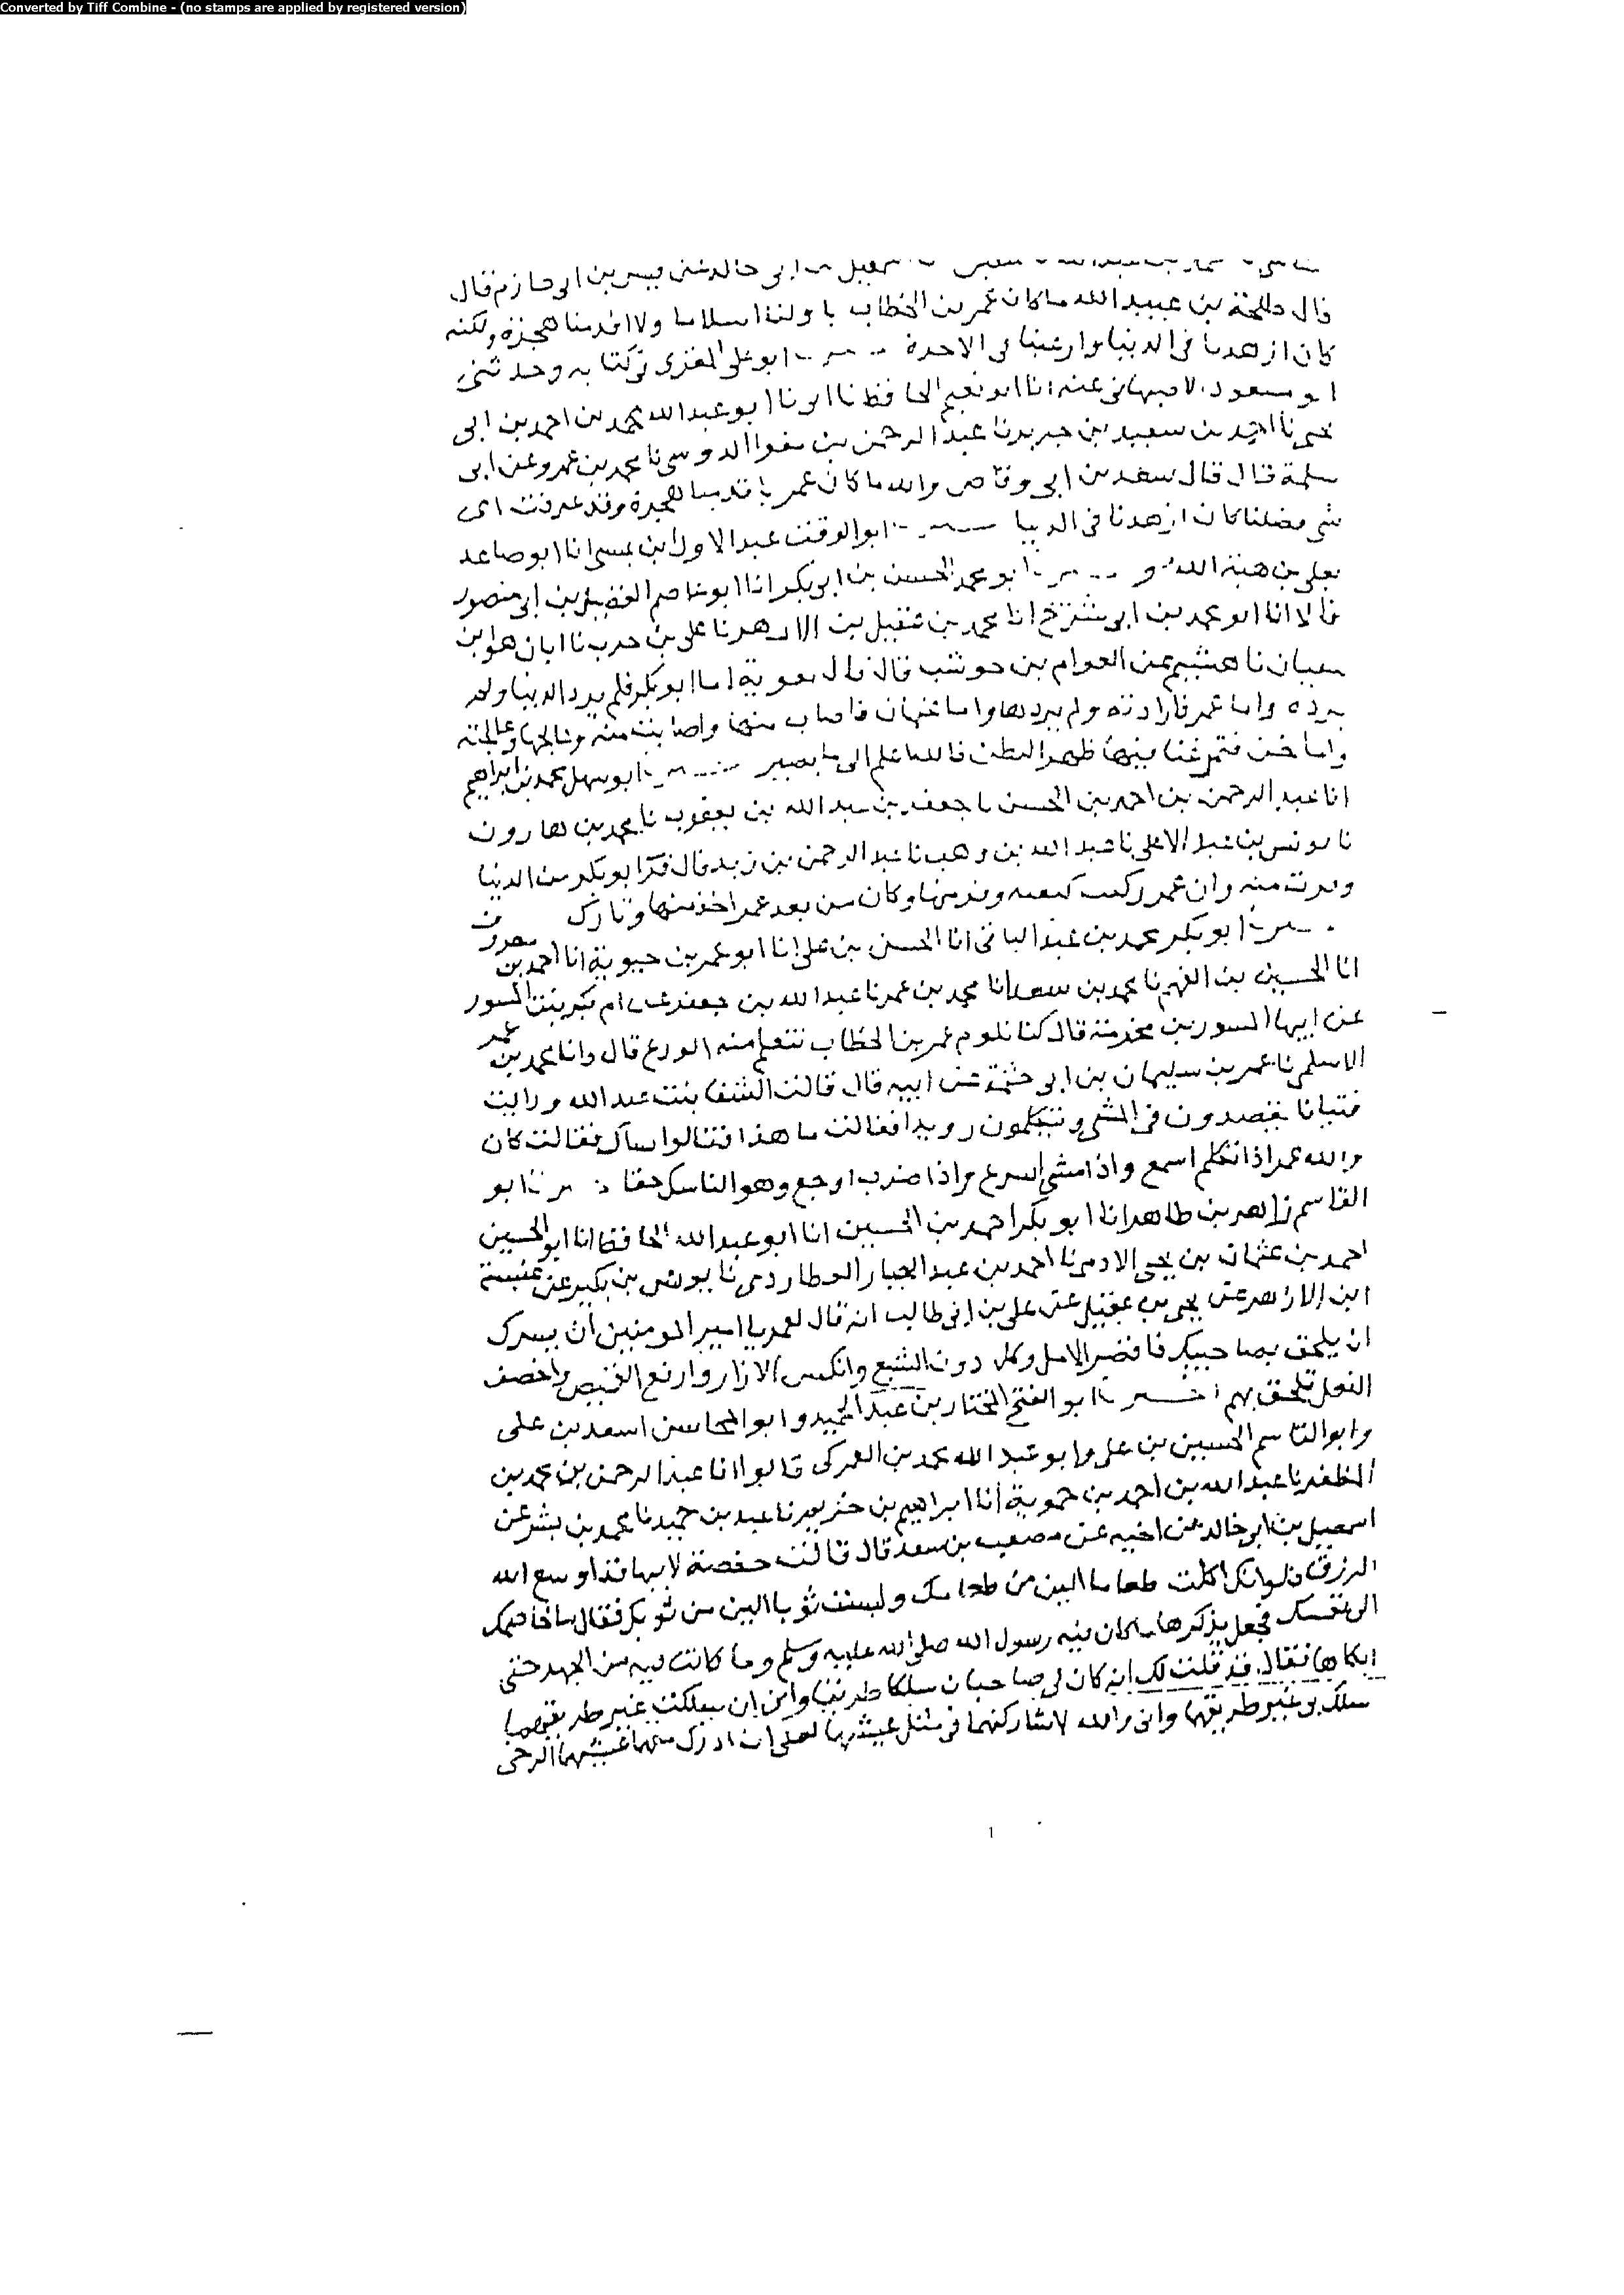 Converted by Tiff Combine - (no stamps are applied by registered version)
ابى خالد عن قيس بن ابى حازم قال
قال طلحة بن عبيد الله ما كان عمر بن الخطاب باولنا اسلاما ولا اقدمنا هجرة ولكنه
كان ازهدنا فى الدنيا وارغبنا فى الاخرة ابو على المقرى فى كتابه وحدثنى
ابو مسعود الاصبهانى عنه انا ابو نعيم الحافظ نا ابو عبد الله محمد بن احمد بن ابى
نا احمد بن سعيد بن جرير نا عبد الرحمن بن مغرا الدوسى نا محمد بن عمرو عن ابى
سلمة قال قال سعد بن ابى وقاص والله ما كان عمر باقدمنا هجرة وقد عرفت اى
شى فضلنا كان ازهدنا فى الدنيا ابو الوقت عبد الاول بن عيسى انا ابو صاعد
يعلى بن هبة الله و ابو محمد الحسن بن ابى بكر انا ابو عاصم الفضيل بن ابى منصور
قالا انا ابو محمد بن ابى شريح انا محمد بن عقيل بن الازهر نا على بن حرب نا ابان هو ابن
سفيان نا هشيم عن العوام بن حوشب قال قال معوية اما ابو بكر فلم يرد الدنيا ولم
يرده واما عمر فارادته ولم يردها واما عثمان فاصاب منها واصابت منه وعالجها وعالجته
واما نحن فتمرغنا فيها ظهرا لبطن فالله اعلم الى ما يصير ابو سهل محمد بن ابراهيم
انا عبد الرحمن بن احمد بن الحسن نا جعفر بن عبد الله بن يعقوب نا محمد بن هارون
نا يونس بن عبد الاعلى نا عبد الله بن وهب نا عبد الرحمن بن زيد قال فر ابو بكر من الدنيا
وفرت منه وان عمر ركبت كتفيه وفر منها وكان من بعد عمر اخذ منها وتارك
ابو بكر محمد بن عبد الباقى انا الحسن بن على انا ابو عمر بن حيوية انا احمد بن معروف
انا الحسين بن الفهم نا محمد بن سعد انا محمد بن عمر نا عبد الله بن جعفر عن ام بكر بنت المسور
عن ابيها المسور بن مخرمة قال كنا نلزم عمر بن الخطاب نتعلم منه الورع قال وانا محمد بن عمر
الاسلمى نا عمر بن سليمان بن ابى حثمة عن ابيه قال قالت الشفا بنت عبد الله ورايت
فتيانا يقصدون فى المشى ويتكلمون رويدا فقالت ما هذا فقالوا نساك فقالت كان
والله عمر اذا تكلم اسمع واذا مشى اسرع واذا ضرب اوجع وهو الناسك حقا ابو
القاسم زاهر بن طاهر انا ابو بكر احمد بن الحسين انا ابو عبد الله الحافظ انا ابو الحسين
احمد بن عثمان بن يحيى الادمى نا احمد بن عبد الجبار العطاردى نا يونس بن بكير عن عنبسة
ابن الازهر عن يحيى بن عقيل عن على بن ابى طالب انه قال لعمر يا امير المومنين ان يسرك
ان يلحق بصاحبيك فاقصر الامل وكل دون الشبع وانكس الازار وارقع القميص واخصف
النعل تلحق بهم ابو الفتح المختار بن عبد الحميد وابو المحاسن اسعد بن على
وابو القاسم الحسين بن على وابو عبد الله محمد بن العمركى قالوا انا عبد الرحمن بن محمد بن
المظفر نا عبد الله بن احمد بن حموية انا ابراهيم بن خزيم نا عبد بن حميد نا محمد بن بشر عن
اسمعيل بن ابى خالد عن اخيه عن مصعب بن سعد قال قالت حفصة لابيها قد اوسع الله
الرزق فلو انك اكلت طعاما الين من طعامك ولبست ثوبا الين من ثوبك فقال ساخاصمك
الى نفسك فجعل يذكرها ما كان فيه رسول الله صلى الله عليه وسلم وما كانت فيه من الجهد حتى
ابكاها فقال قد قلت لك انه كان لى صاحبان سلكا طريقا وانى ان سلكت غير طريقهما
سلك بى غير طريقهما وانى والله لاشاركنهما فى مثل عيشهما لعلى ان ادرك معهما عيشهما الرخى
1